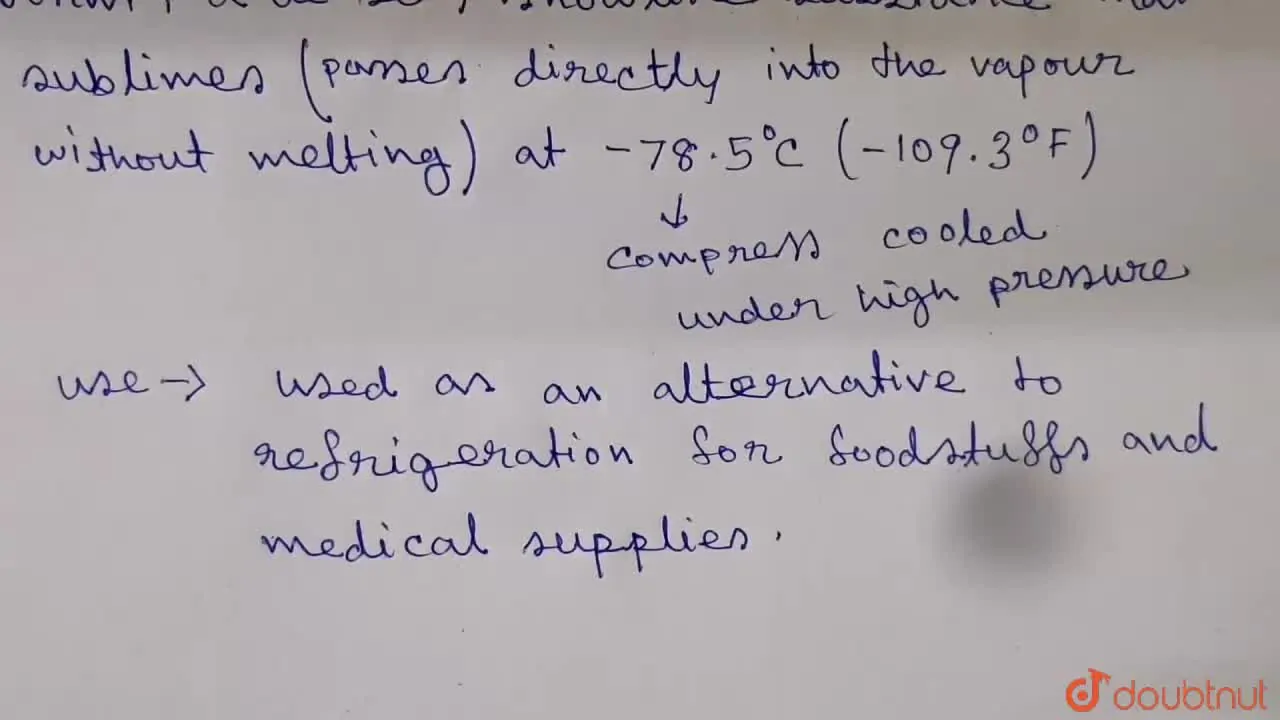 sublimes (passes directly into the vapour
without melting) at -78.5°C (-109.3°F)
↓
compress cooled
under high pressure
use → used as an alternative to
refrigeration for foodstuffs and
medical supplies.
doubtnut